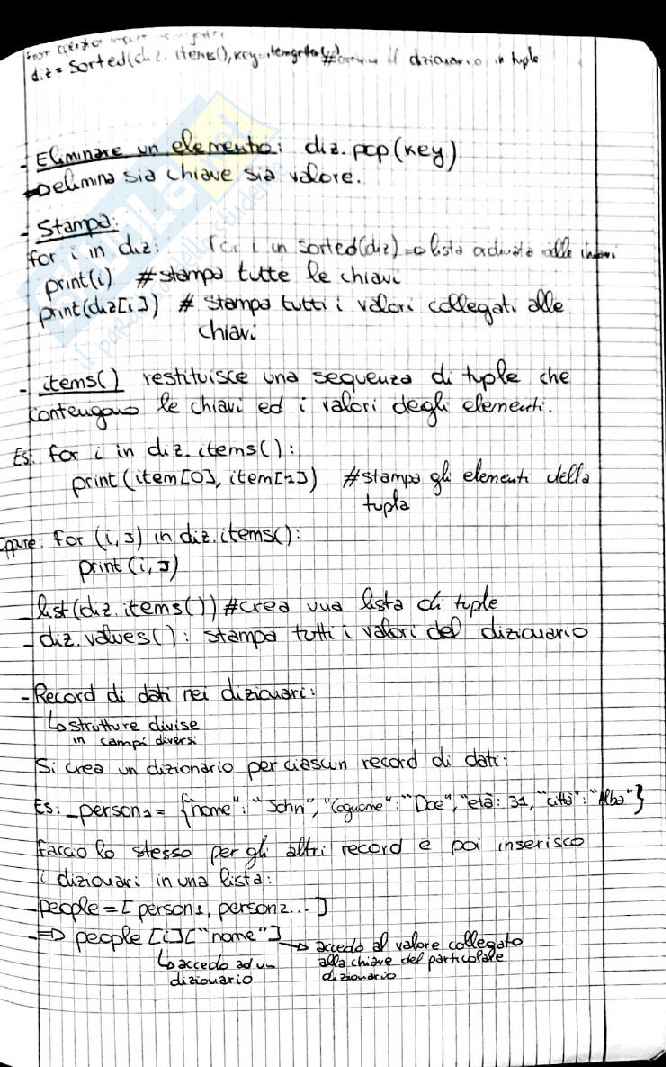 diz = sorted(diz.items(), key=itemgetter( dizionario in tuple
- Eliminare un elemento: diz.pop(key)
elimina sia chiave sia valore.
- Stampa:
for i in diz: for i in sorted(diz) lista
print(i) #stampa tutte le chiavi
print(diz[i]) # stampa tutti i valori collegati alle
chiavi
- items() restituisce una sequenza di tuple che
contengono le chiavi ed i valori degli elementi.
Es. for i in diz.items():
print(item[0], item[1]) #stampa gli elementi della
tupla
oppure. for (i,j) in diz.items():
print(i,j)
- list(diz.items()) #crea una lista di tuple
- diz.values(): stampa tutti i valori del dizionario
- Record di dati nei dizionari:
↳ strutture divise
in campi diversi
Si crea un dizionario per ciascun record di dati:
Es: person1 = {"nome": "John", "cognome": "Doe", "età: 31, "città": "Alba"}
Faccio lo stesso per gli altri record e poi inserisco
i dizionari in una lista:
people = [person1, person2...]
=> people[i]["nome"] → accedo al valore collegato
↳ accedo ad un alla chiave del particolare
dizionario dizionario